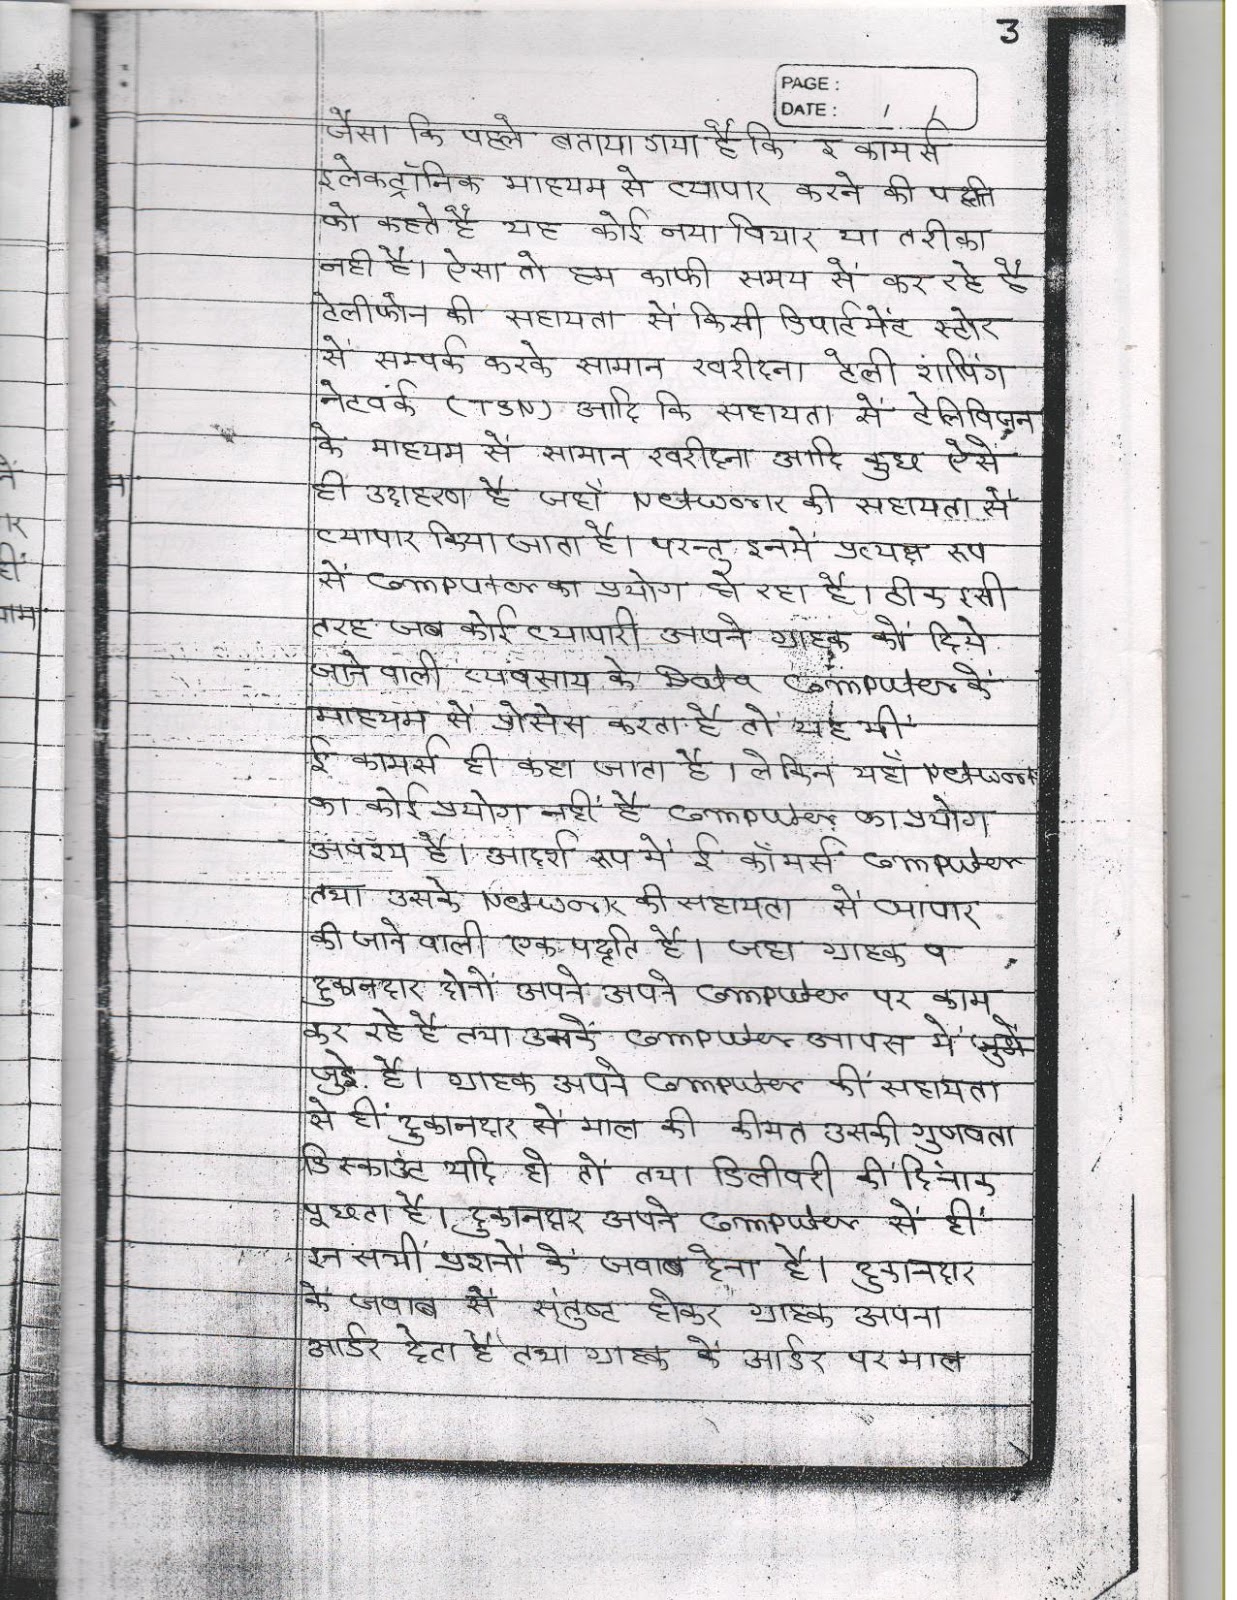 3
PAGE :
DATE : / /
जैसा कि पहले बताया गया है कि इ कामर्स
इलेकट्रॉनिक माध्यम से व्यापार करने की पद्धति
को कहते है यह कोई नया विचार या तरीका
नही है। ऐसा तो हम काफी समय से कर रहे है
टेलीफोन की सहायता से किसी डिपार्टमेंट स्टोर
से सम्पर्क करके सामान खरीदना टेली शांपिग
नेटवर्क (TSN) आदि कि सहायता सें टेलिविजन
के माध्यम सें सामान खरीदना आदि कुछ ऐसें
ही उदाहरण है जहाँ Network की सहायता सें
व्यापार किया जाता है। परन्तु इनमें प्रत्यक्ष रूप
सें Computer का प्रयोग हो रहा है। ठीक इसी
तरह जब कोई व्यापारी अपने ग्राहक को दिये
जाने वाली व्यवसाय के Data Computer के
माध्यम सें प्रोसेस करता है तो यह भी
ई कामर्स ही कहा जाता है। लेकिन यहाँ Network
का कोई प्रयोग नहीं है Computer का प्रयोग
अवश्य है। आदर्श रूप में ई कॉमर्स Computer
तथा उसके Network की सहायता सें व्यापार
की जाने वाली एक पद्धति है। जहा ग्राहक व
दुकानदार दोनों अपने अपने Computer पर काम
कर रहे है तथा उनके Computer आपस में
जुड़े है। ग्राहक अपने Computer की सहायता
से ही दुकानदार सें माल की कीमत उसकी गुणवता
डिस्काउंट यदि हो तो तथा डिलीवरी की दिंनाक
पूछता है। दुकानदार अपने Computer सें ही
इन सभी प्रशनों के जवाब देना है। दुकानदार
के जवाब सें संतुष्ट होकर ग्राहक अपना
आर्डर देता है तथा ग्राहक के आर्डर पर माल